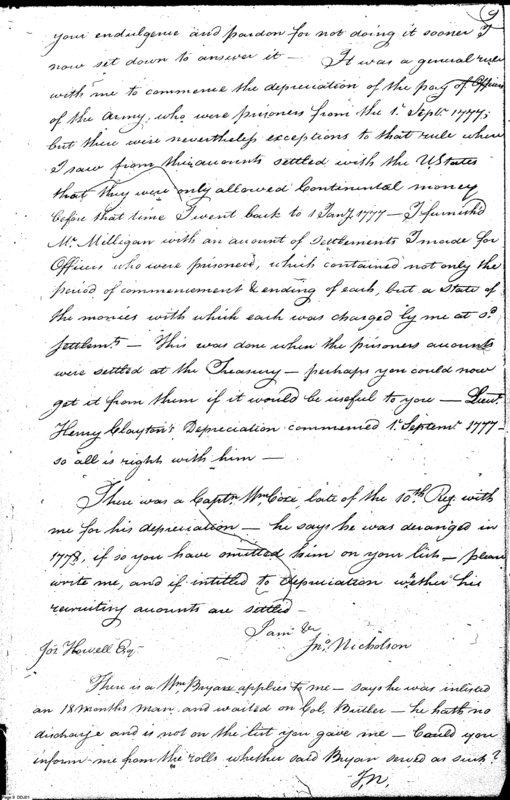 9
your indulgence and pardon for not doing it sooner I
now set down to answer it — It was a general rule
with me to commence the depreciation of the pay of Officers
of the Army, who were prisoners from the 1st Septr 1777;
but there were nevertheless exceptions to that rule where
I saw from their accounts settled with the U. States
that they were only allowed Continental money
before that time I went back to 1 Jany 1777 — I furnish'd
Mr Milligan with an account of settlements I made for
Officers who were prisoners, which contained not only the
period of commencement & ending of each, but a state of
the monies with which each was charged by me at sd
settlemts — This was done when the prisoners accounts
were settled at the Treasury — perhaps you could now
get it from them if it would be useful to you — Lieut
Henry Clayton's Depreciation commenced 1st Septemr 1777 —
so all is right with him —
There was a Captn Wm Coxe, late of the 10th Reg. with
me for his depreciation — he says he was deranged in
1778, if so you have omitted him on your list — please
write me, and if intitled to depreciation whether his
recruiting accounts are settled —
I am &c
Jno Nicholson
Jos Howell Esqr
There is a Wm Bryan applies to me — says he was inlisted
an 18 months man and waited on Col. Butler — he hath no
discharge and is not on the list you gave me — Could you
inform me from the rolls whether said Bryan served as such?
J.N.